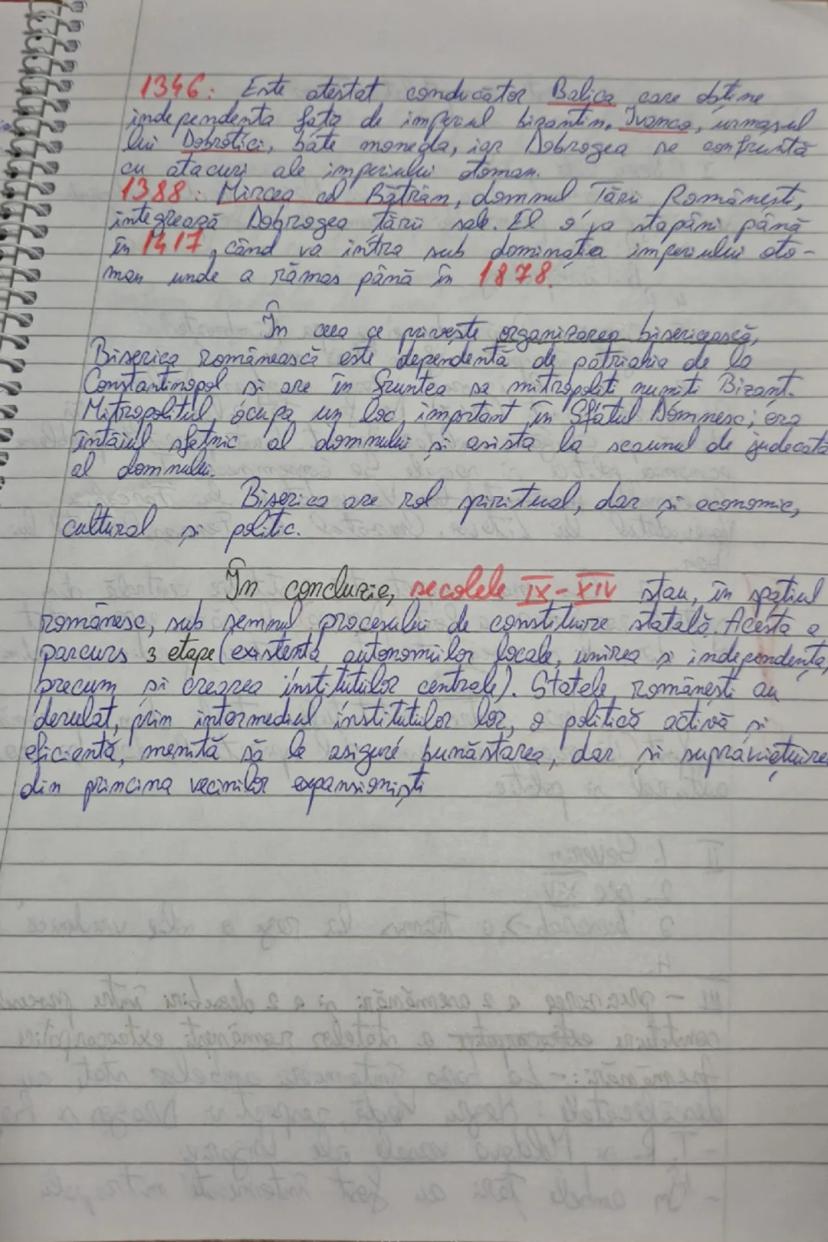 1346: Este atestat conducător Balica care obține
independența față de imperiul bizantin. Ivanco, urmașul
lui Dobrotici, bate monedă, iar Dobrogea se confruntă
cu atacuri ale imperiului otoman.
1388: Mircea cel Bătrân, domnul Țării Românești,
integrează Dobrogea țării sale. El o va stăpâni până
în 1417, când va intra sub dominația imperiului oto-
man unde a rămas până în 1878.
În ceea ce privește organizarea bisericească,
Biserica românească este dependentă de patriarhia de la
Constantinopol și are în fruntea sa mitropoliți numiți Bizant.
Mitropolitul ocupa un loc important în Sfatul Domnesc; era
întâiul sfetnic al domnului și asista la scaunul de judecată
al domnului.
Biserica are rol spiritual, dar și economic,
cultural și politic.
În concluzie, secolele IX-XIV stau, în spațiul
românesc, sub semnul procesului de constituire statală. Acesta a
parcurs 3 etape (existența autonomiilor locale, unirea și independența,
precum și crearea instituțiilor centrale). Statele românești au
derulat, prin intermediul instituțiilor lor, o politică activă și
eficientă, menită să le asigure bunăstarea, dar și supraviețuire
din pricina vecinilor expansioniști